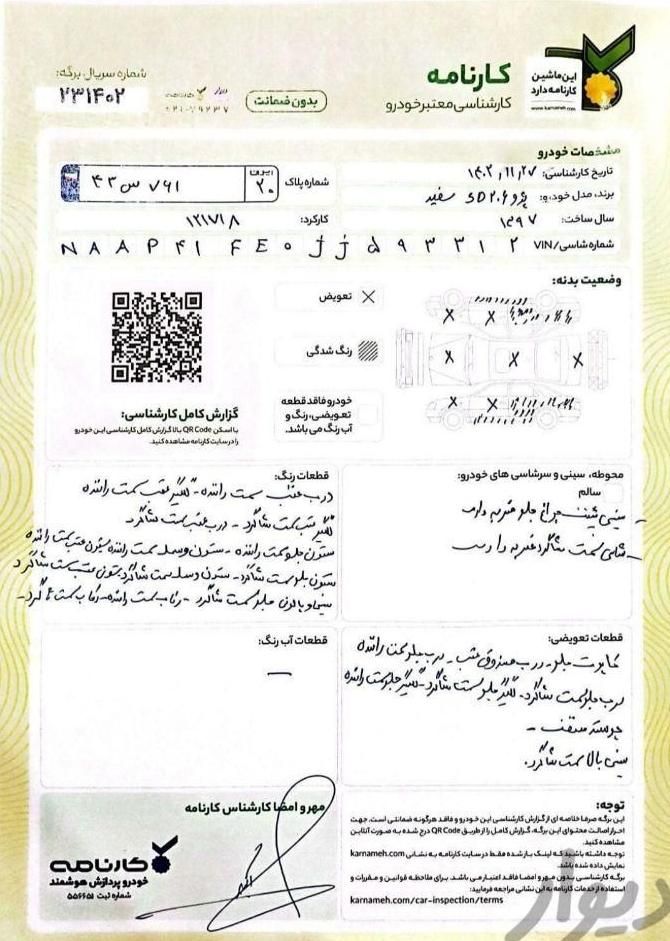 این ماشین
کارنامه دارد
www.karnameh.com
کارنامه
کارشناسی معتبر خودرو
بدون ضمانت
دیوار کارنامه
شماره سریال برگه:
۲۳۱۴۰۲
مشخصات خودرو
تاریخ کارشناسی: ۱۴۰۲,۱۱,۲۷
برند، مدل خودرو: پژو ۲۰۶ SD سفید
سال ساخت: ۱۳۹۷
شماره پلاک
۴۳ س ۷۶۱
ایران
۲۰
کارکرد: ۱۲۱۷۱۸
شماره شاسی/VIN
N A A P ۴۱ F E ۰ J J ۵ ۹ ۳ ۳ ۱ ۲
وضعیت بدنه:
تعویض
رنگ شدگی
خودرو فاقد قطعه
تعویضی، رنگ و
آب رنگ می‌باشد.
گزارش کامل کارشناسی:
با اسکن QR Code بالا گزارش کامل کارشناسی این خودرو
را در سایت کارنامه مشاهده کنید.
محوطه، سینی و سرشاسی های خودرو:
سالم
سینی پشت چراغ جلو ضربه دارد
شاسی سمت شاگرد ضربه دارد
قطعات رنگ:
درب عقب سمت راننده - گلگیر عقب سمت راننده
گلگیر عقب سمت شاگرد - درب عقب سمت شاگرد
ستون جلو سمت راننده - ستون وسط سمت راننده ستون عقب سمت راننده
ستون جلو سمت شاگرد - ستون وسط سمت شاگرد ستون عقب سمت شاگرد
جلو سمت شاگرد - رکاب سمت راننده - رکاب سمت شاگرد -
قطعات تعویضی:
کاپوت جلو - درب صندوق عقب - درب جلو سمت راننده
درب جلو سمت شاگرد - گلگیر جلو سمت شاگرد - گلگیر جلو سمت راننده
پوسته سقف -
سینی بالا سمت شاگرد.
قطعات آب رنگ:
—
توجه:
این برگه صرفا خلاصه ای از گزارش کارشناسی این خودرو و فاقد هرگونه ضمانتی است. جهت
احراز اصالت محتوای این برگه، گزارش کامل را از طریق QR Code درج شده به صورت آنلاین
مشاهده کنید.
توجه داشته باشید که لینک باز شده فقط در سایت کارنامه به نشانی karnameh.com
نمایش داده شده باشد.
برگه کارشناسی بدون مهر و امضا فاقد اعتبار می باشد. برای ملاحظه قوانین و مقررات و
استفاده از خدمات کارنامه به این نشانی مراجعه فرمایید:
karnameh.com/car-inspection/terms
مهر و امضا کارشناس کارنامه
کارنامه
خودرو پردازش هوشمند
شماره ثبت ۵۵۶۶۵۱
دیوار